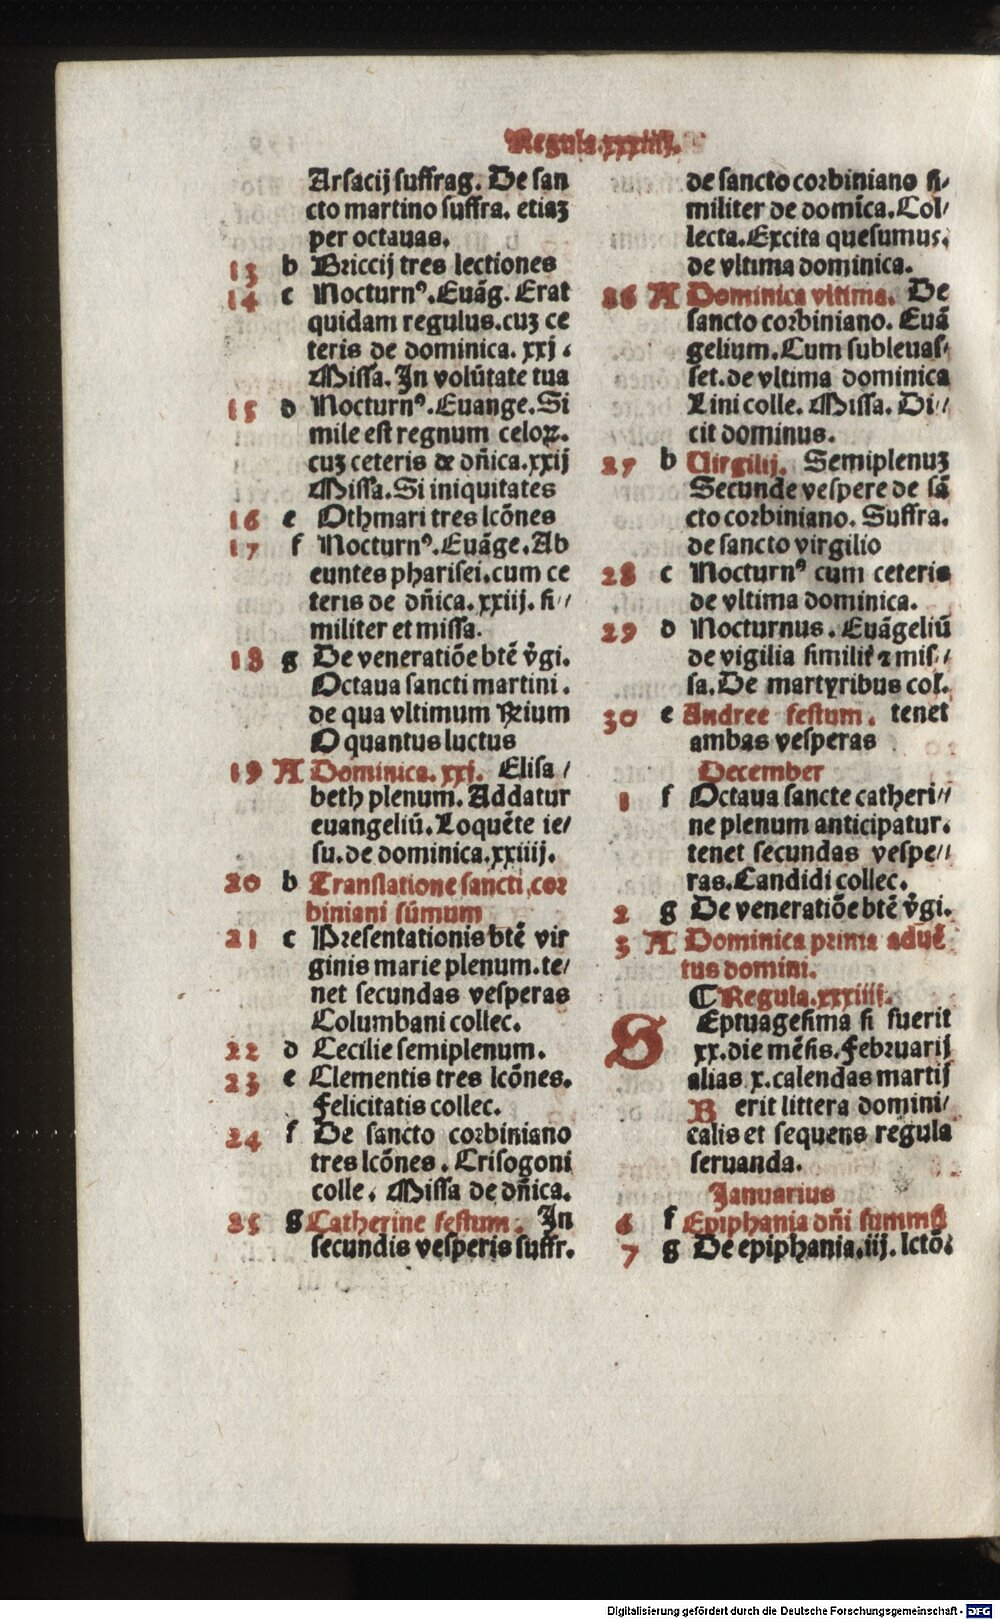 Regula.xxxiiij.
Arsacij suffrag. De san
cto martino suffra. etiaʒ
per octauas.
13 b Briccij tres lectiones
14 c Nocturnꝰ.Euāg. Erat
quidam regulus.cuʒ ce
teris de dominica. xxj.
Missa. In volūtate tua
15 d Nocturnꝰ.Euange.Si
mile est regnum celoꝝ.
cuʒ ceteris de dn̄ica.xxij
Missa.Si iniquitates
16 e Othmari tres lcōnes
17 f Nocturnꝰ.Euāge.Ab
euntes pharisei.cum ce
teris de dn̄ica.xxiij. si//
militer et missa.
18 g De veneratiōe btē v̄gi.
Octaua sancti martini.
de qua vltimum ꝶium
O quantus luctus
19 A Dominica.xxj. Elisa/
beth plenum. Addatur
euangeliū.Loquēte ie/
su.de dominica.xxiiij.
20 b Translatione sancti cor
biniani sūmum
21 c Presentationis btē vir
ginis marie plenum.te/
net secundas vesperas
Columbani collec.
22 d Cecilie semiplenum.
23 e Clementis tres lcōnes.
Felicitatis collec.
24 f De sancto corbiniano
tres lcōnes. Crisogoni
colle. Missa de dn̄ica.
25 g Catherine festum. In
secundis vesperis suffr.
de sancto corbiniano si/
militer de domīca.Col/
lecta.Excita quesumus.
de vltima dominica.
26 A Dominica vltima. De
sancto corbiniano. Euā
gelium.Cum subleuas/
set.de vltima dominica
Lini colle. Missa. Di//
cit dominus.
27 b Uirgilij. Semiplenuʒ
Secunde vespere de sā
cto corbiniano. Suffra.
de sancto virgilio
28 c Nocturnꝰ cum ceteris
de vltima dominica.
29 d Nocturnus. Euāgeliū
de vigilia similit̄ ⁊ mis/
sa.De martyribus col.
30 e Andree festum. tenet
ambas vesperas
December
1 f Octaua sancte catheri//
ne plenum anticipatur.
tenet secundas vespe//
ras.Candidi collec.
2 g De veneratiōe btē v̄gi.
3 A Dominica prima aduē
tus domini.
¶Regula.xxxiiij.
SEptuagesima si fuerit
xx.die mēsis.Februarij
alias x.calendas martij
B erit littera domini/
calis et sequens regula
seruanda.
Januarius
6 f Epiphania dn̄i summū
7 g De epiphania.iij.lctō.
Digitalisierung gefördert durch die Deutsche Forschungsgemeinschaft - DFG